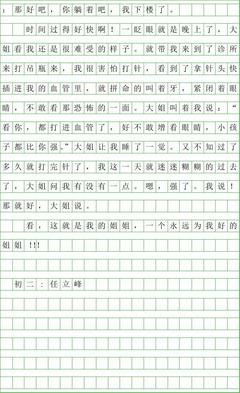 ：那好吧，你躺着吧，我下楼了。
时间过得好快啊！一眨眼就是晚上了，大
姐看我还是很难受的样子。就带我来到了诊所
来打吊瓶来，我很害怕打针，看到了拿针头快
插进我的血管里，就拼命的叫着牙，紧闭着眼
睛，不敢看那恐怖的一面。大姐叫着我说：“
看你，都打进血管了，好不敢增着眼睛，小孩
子都比你强。”大姐让我睡了一觉。又不知过了
多久就打完针了，我这一天就迷迷糊糊的过去
了，大姐问我有没有一点。嗯，强了。我说！
那就好，大姐说。
看，这就是我的姐姐，一个永远为我好的
姐姐!!!
初二：任立峰